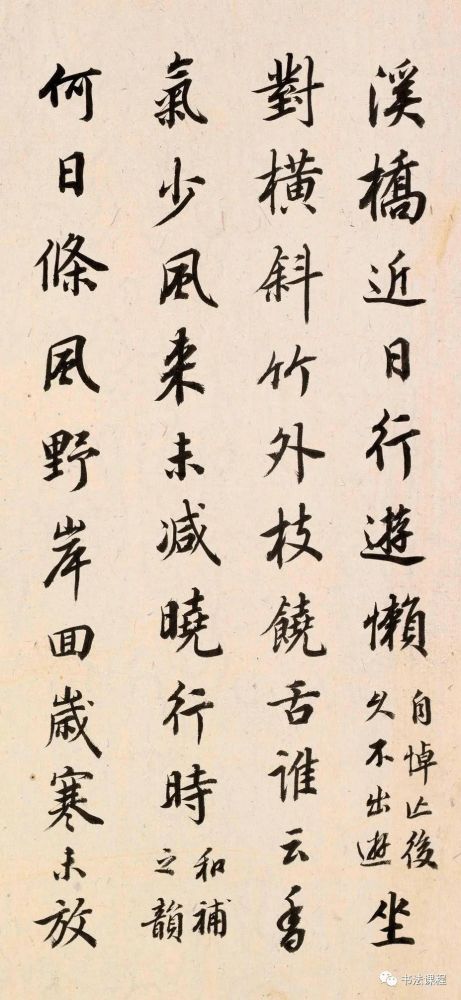 溪橋近日行遊懶自悼亡後久不出遊坐
對橫斜竹外枝饒舌誰云香
氣少風来未减曉行時和補之韻
何日條風野岸回歳寒未放
书法课程